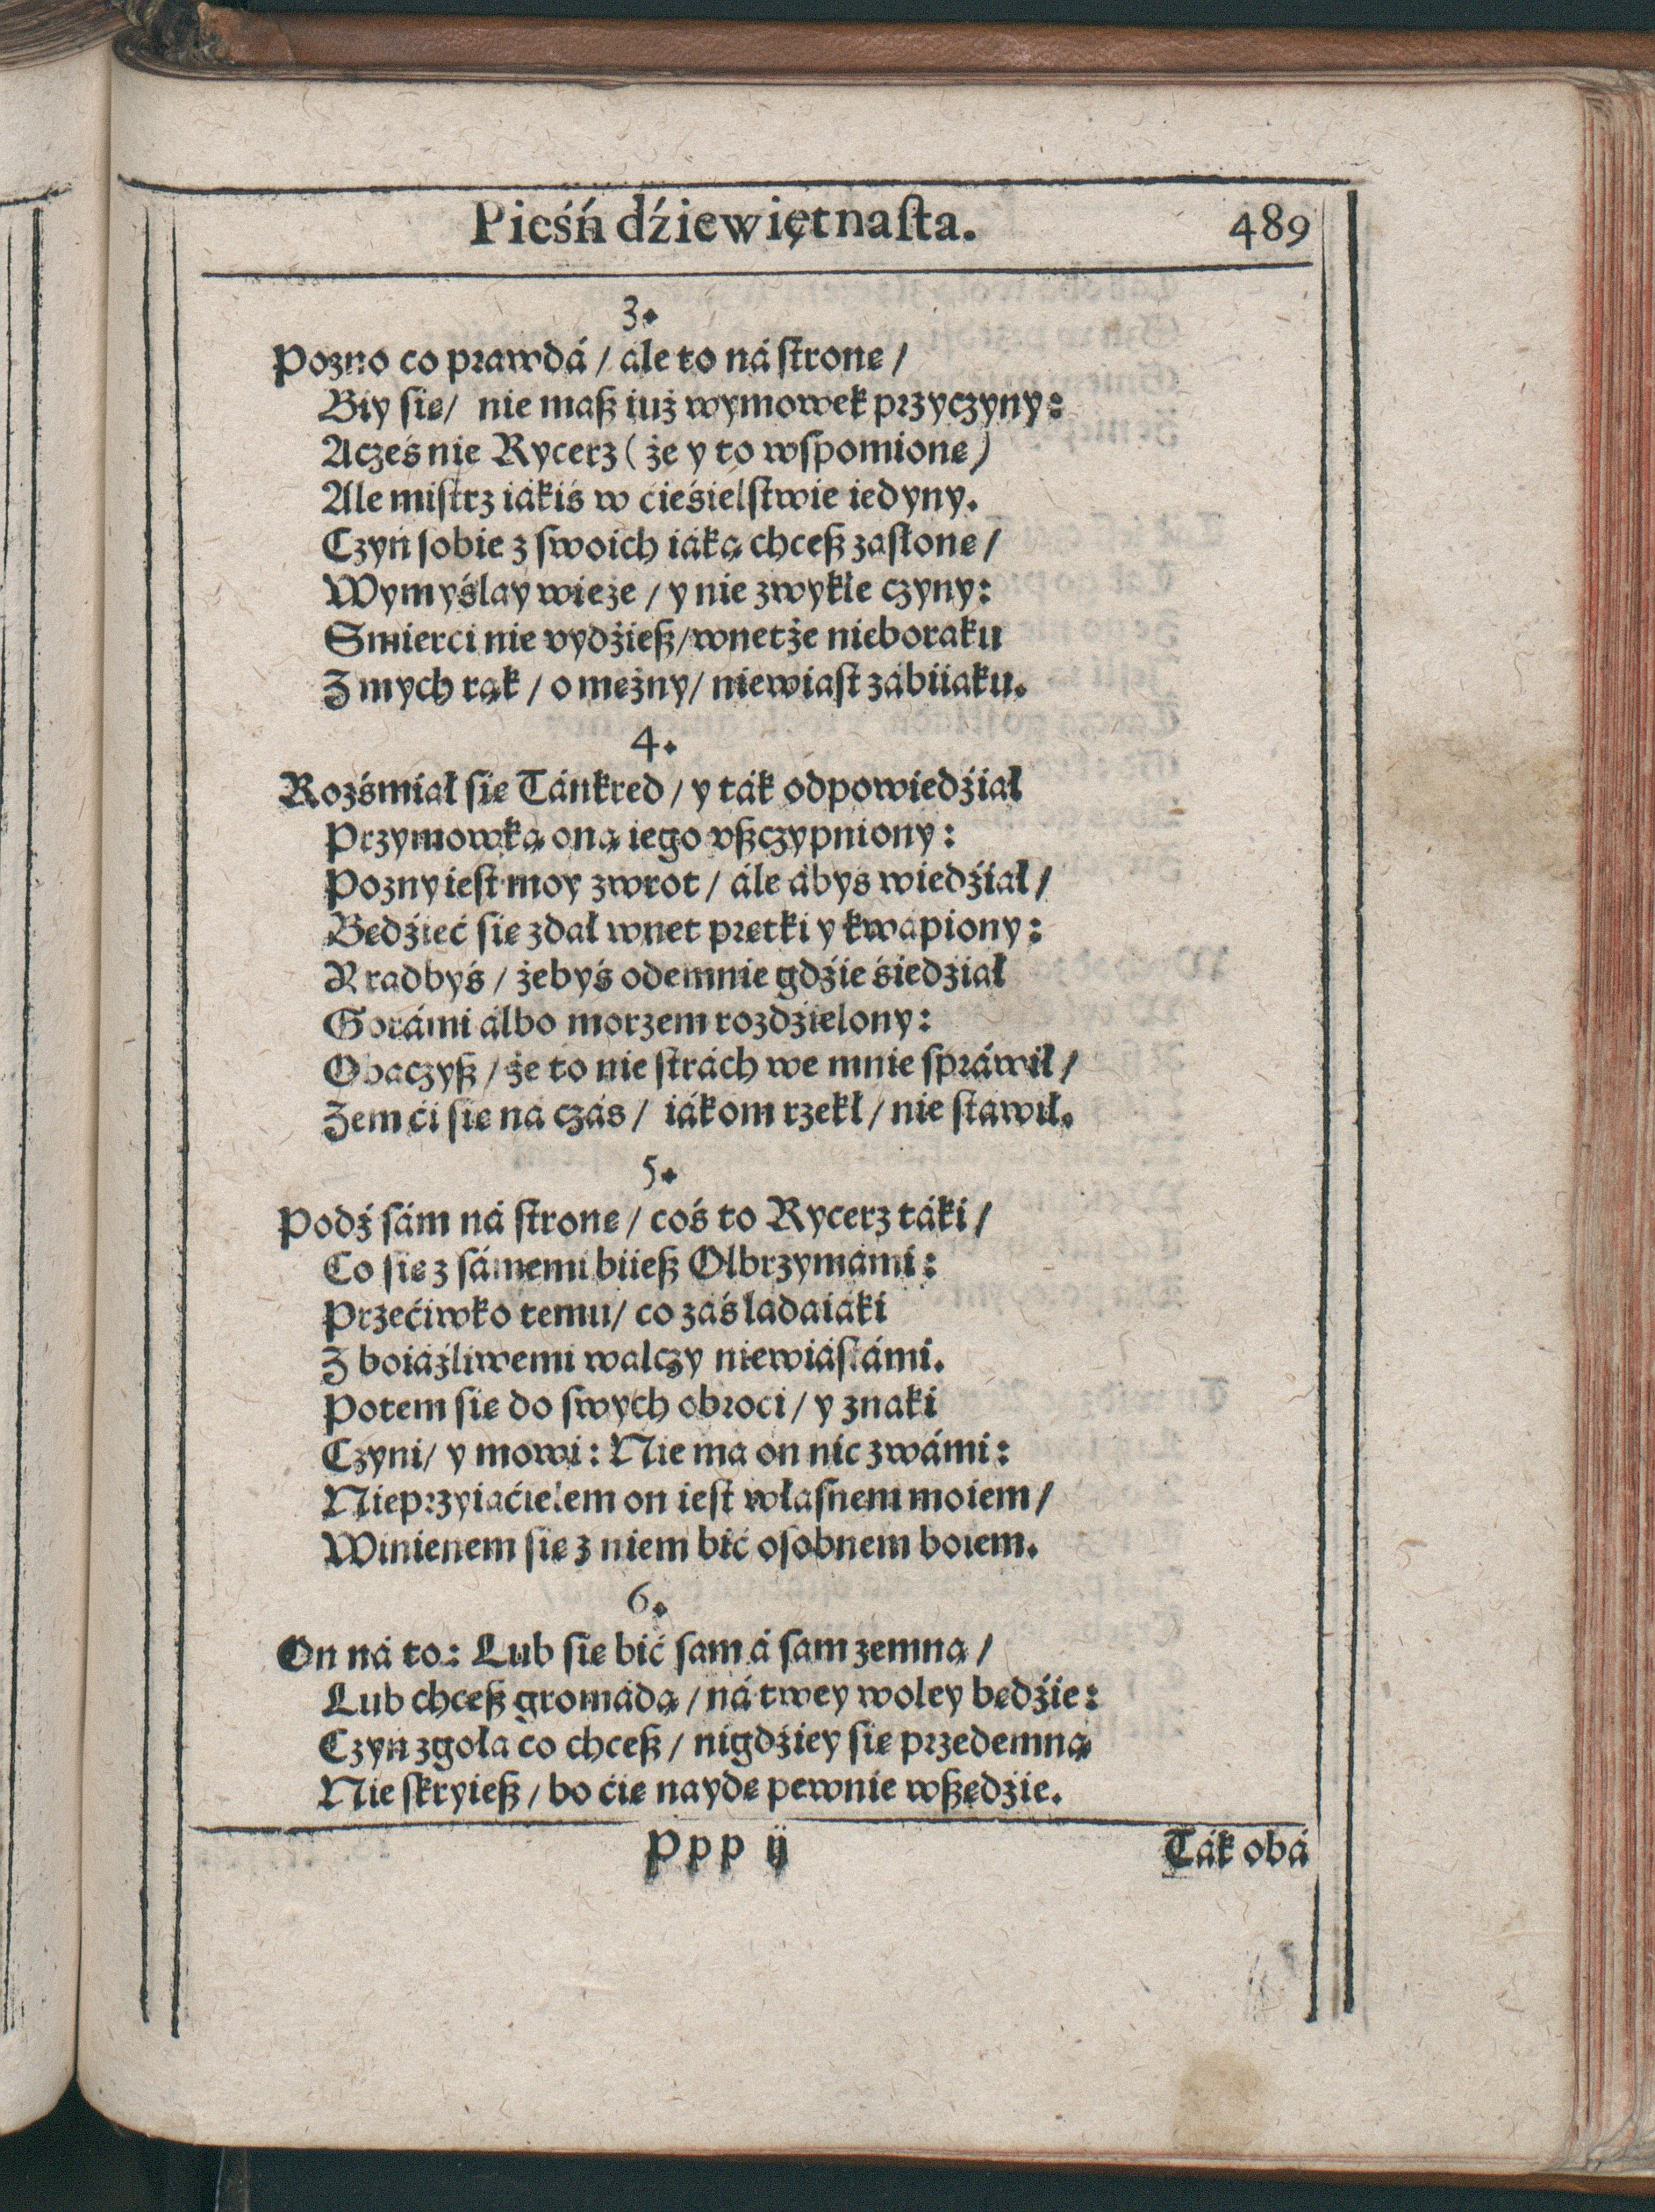 Pieśń dźiewiętnaſta. 489
3.
Pozno co prawdá / ale to ná ſtronę /
Biy ſię / nie maſz iuż wymowek przyczyny:
Acześ nie Rycerz ( że y to wſpomionę )
Ale miſtrz iákiś w cieśielſtwie iedyny.
Czyń ſobie z ſwoich iáką chceſz zasłonę /
Wymyślay wieże / y nie zwykłe czyny:
Smierci nie vydźieſz / wnetże nieboraku
Z mych rąk / o mężny / niewiaſt zábiiaku.
4.
Rozśmiał ſię Tánkred / y ták odpowiedźiał
Przymowką oną iego vſzczypniony:
Pozny ieſt moy zwrot / ále ábyś wiedźiał /
Będźieć ſię zdał wnet prętki y kwápiony:
Y radbyś / żebyś odemnie gdźie śiedźiał
Gorámi álbo morzem rozdźielony:
Obaczyſz / że to nie ſtrách we mnie ſpráwił /
Zem ći ſię ná czás / iákom rzekł / nie ſtawił.
5.
Podź ſám ná ſtronę / coś to Rycerz táki /
Co ſię z ſámemi biieſz Olbrzymámi:
Przećiwko temu / co záś ladaiáki
Z boiáźliwemi walczy niewiáſtámi.
Potem ſię do ſwych obroci / y znaki
Czyni / y mowi: Nie ma on nic z wámi:
Nieprzyiaćielem on ieſt właſnem moiem /
Winienem ſię z niem bić oſobnem boiem.
6.
On ná to: Lub ſię bić ſam á ſam zemną /
Lub chceſz gromádą / ná twey woley będźie:
Czyń zgołá co chceſz / nigdźiey ſię przedemną
Nie ſkryieſz / bo ćię naydę pewnie wſzędźie.
Ppp ij Ták obá